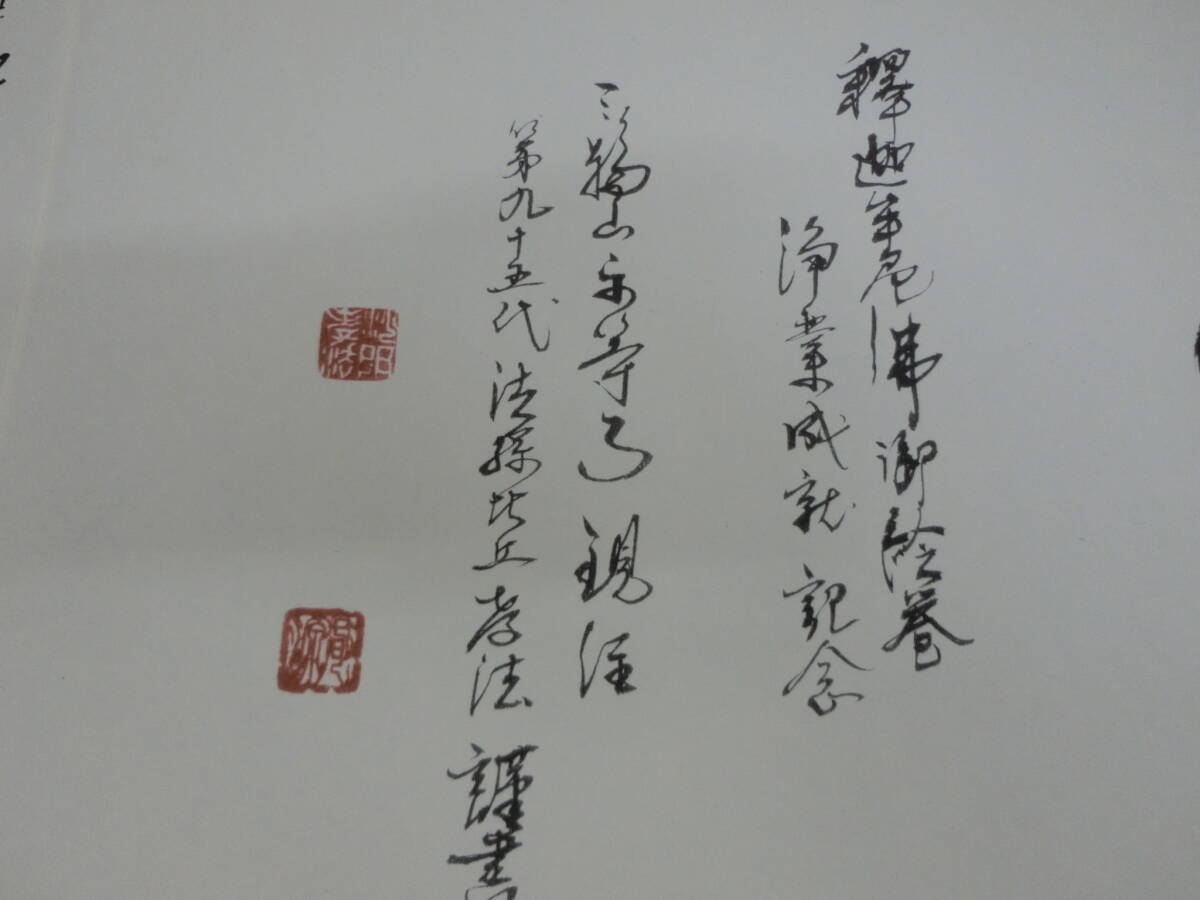 釋迦牟尼佛御絵巻
浄業成就 記念
三輪山平等寺 現住
第九十五代 法孫比丘 孝法 謹書